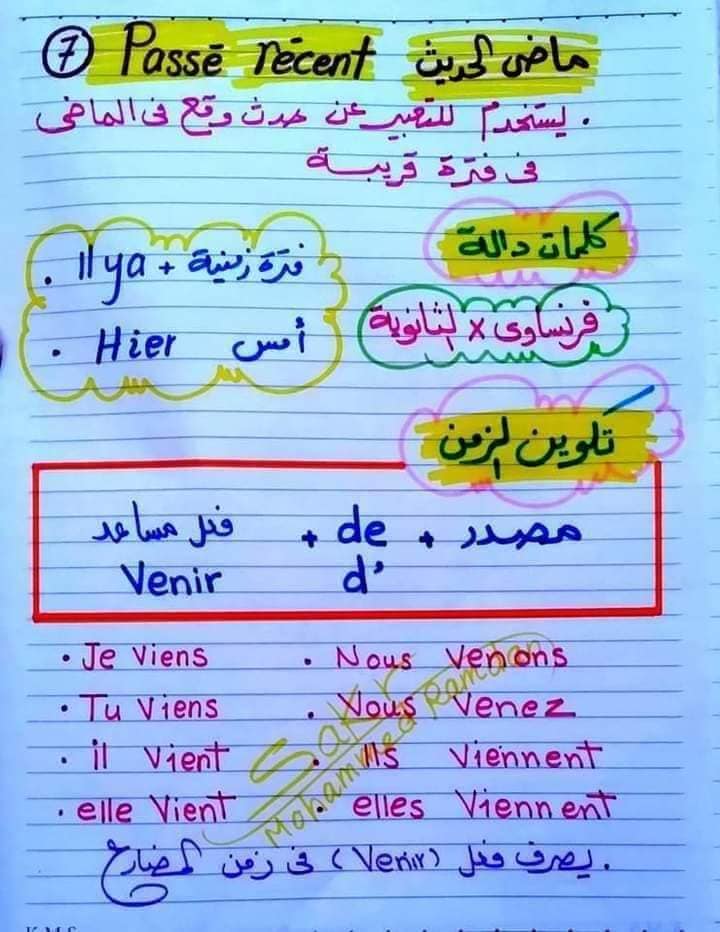 7 Passé récent ماضى الحديث
. يستخدم للتعبير عن حدث وقع فى الماضى
فى فترة قريبة
كلمات دالة
. Il ya + فترة زمنية
. Hier أمس
فرنساوى x الثانوية
تكوين الزمن
فعل مساعد + de + مصدر
Venir d'
. Je Viens . Nous Venons
. Tu Viens . Vous Venez
. il Vient . Ils Viennent
. elle Vient . elles Viennent
Sakr
Mohammed Ramdan
. يصرف فعل (Venir) فى زمن المضارع